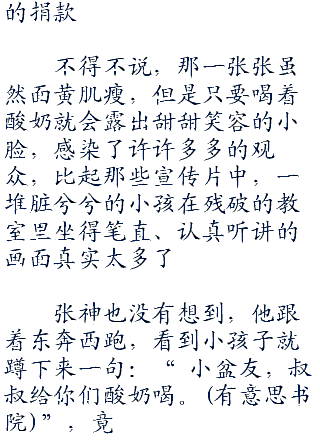 的捐款
不得不说，那一张张虽
然面黄肌瘦，但是只要喝着
酸奶就会露出甜甜笑容的小
脸，感染了许许多多的观
众，比起那些宣传片中，一
堆脏兮兮的小孩在残破的教
室里坐得笔直、认真听讲的
画面真实太多了
张神也没有想到，他跟
着东奔西跑，看到小孩子就
蹲下来一句：“ 小盆友，叔
叔给你们酸奶喝。 (有意思书
院) ”，竟